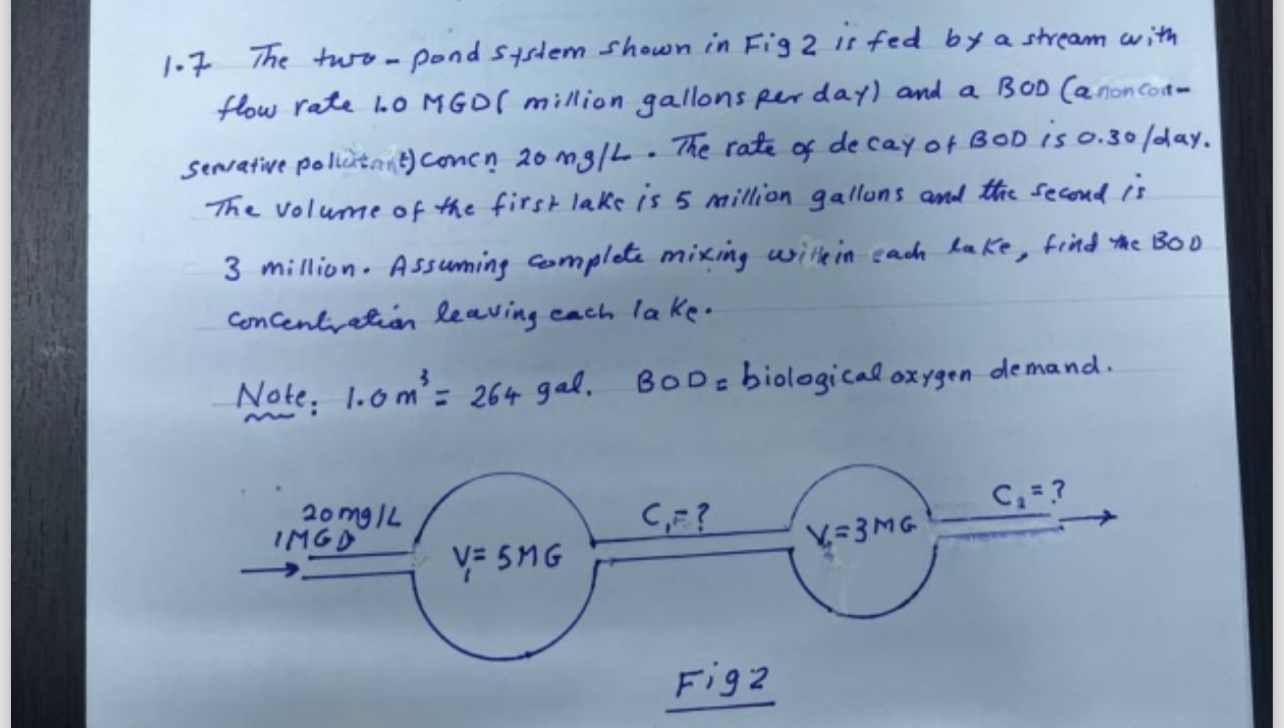 1.7 The two-pond system shown in Fig 2 is fed by a stream with
flow rate 1.0 MGD( million gallons per day) and a BOD (a noncon-
servative pollutant) concn 20 mg/L. The rate of decay of BOD is 0.30/day.
The volume of the first lake is 5 million gallons and the second is
3 million. Assuming complete mixing within each lake, find the BOD
concentration leaving each lake.
Note: 1.0 m³ = 264 gal. BOD = biological oxygen demand.
20 mg/L
1MGD
V₁= 5MG
C₁=?
V₂=3MG
C₂=?
Fig 2